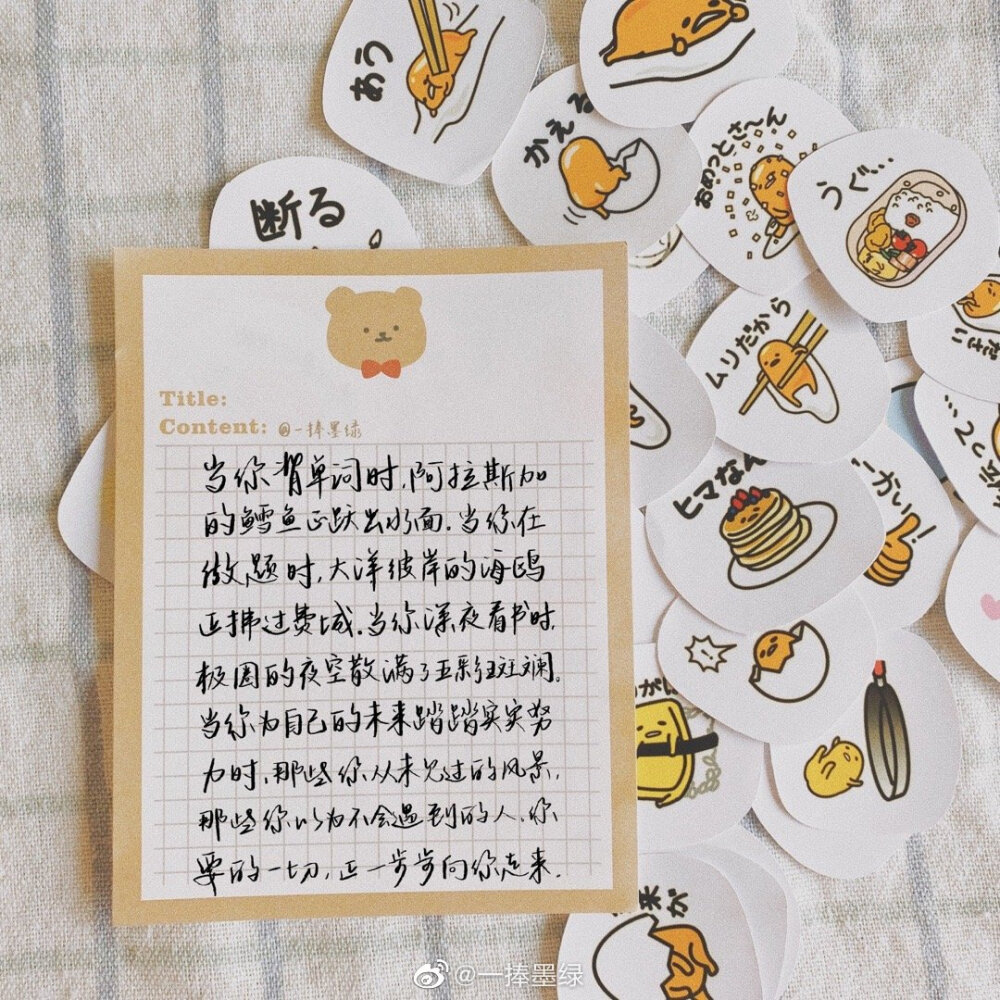 あう
かえる
おめっとさ〜ん
うぐ…
断る
ムリだから
ヒマなん
Title:
Content: @一捧墨绿
当你背单词时,阿拉斯加
的鳕鱼正跃出水面.当你在
做题时,大洋彼岸的海鸥
正拂过费城.当你深夜看书时,
极圈的夜空散满了五彩斑斓.
当你为自己的未来踏踏实实努
力时,那些你从未见过的风景,
那些你以为不会遇到的人.你
要的一切,正一步步向你走来.
来が
@一捧墨绿